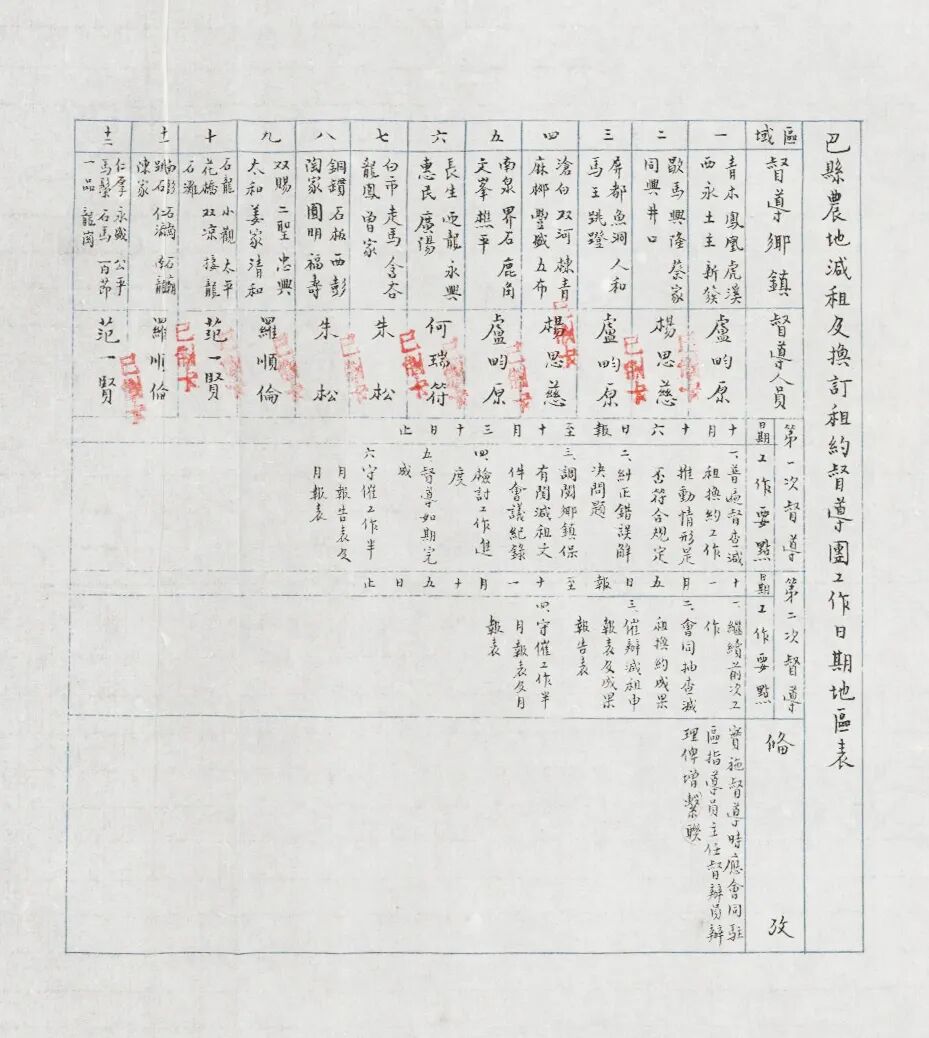 巴縣農地減租及換訂租約督導團工作日期地區表
區域
督導鄉鎮
督導人員
第一次督導
日期
工作要點
第二次督導
日期
工作要點
備攷
一
青木鳳凰虎溪
西永土主新發
盧昀原
二
歇馬興隆蔡家
同興井口
楊思慈
三
屏都魚洞人和
馬王跳蹬
盧昀原
四
滄白双河棘青
麻柳豐盛五布
楊思慈
五
南泉界石鹿角
文峯樵平
盧昀原
六
長生迎龍永興
惠民廣陽
何瑞符
七
白市走馬含谷
龍鳳曾家
朱松
八
銅鑵石板西彭
陶家圓明福壽
朱松
九
双賜二聖忠興
太和姜家清和
羅順倫
十
石龍小觀太平
花橋双凉接龍
石灘
范一賢
十一
南彭石
跳石仁
陳家
羅順倫
十二
仁厚永盛公平
馬鬃石馬百節
一品龍崗
范一賢
十月十六日報至十月三十日止
一、普遍督查減
租換約工作
推動情形是
否符合規定
二、糾正錯誤解
决問題
三、調閱鄉鎮保
有関減租文
件會議紀錄
四、檢討工作進
度
五、督導如期完
成
六、守催工作半
月報告表及
月報表
十一月五日報至十一月十五日止
一、繼續前次工
作
二、會同抽查減
租換約成果
三、催辦減租申
報表及成果
報告表
四、守催工作半
月報表及月
報表
實施督導時應會同駐
區指導員主任督辦員辦
理俾增繫聯
已制卡
已制卡
已制卡
已制卡
已制卡
已制卡
已制卡
已制卡
已制卡
已制卡